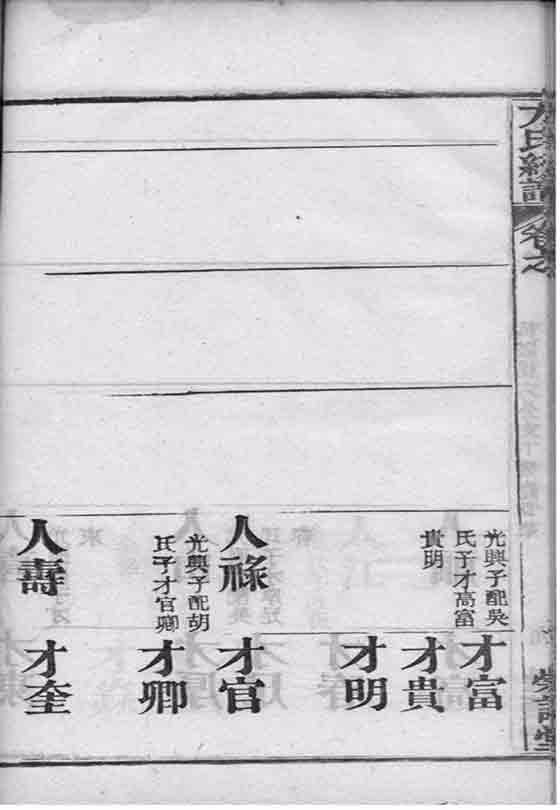 氏
卷之
光興子配吳
氏子才高富
貴明
人祿
光興子配胡
氏子才官卿
人壽
才富
才貴
才明
才官
才卿
才奎